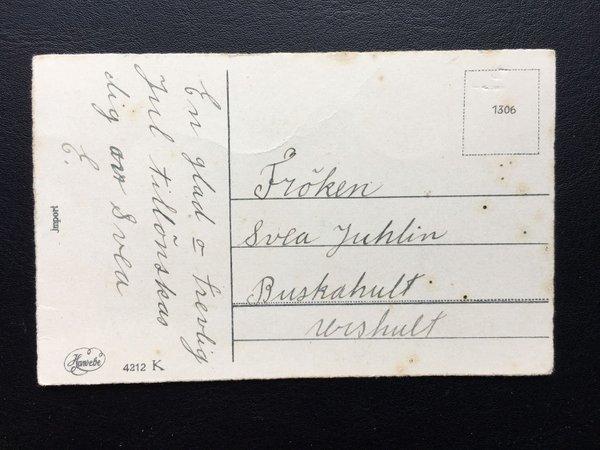 En glad o trevlig
Jul tillönskas
dig av Svea
E.
Import
Hawebe
4212 K
1306
Fröken
Svea Juhlin
Buskahult